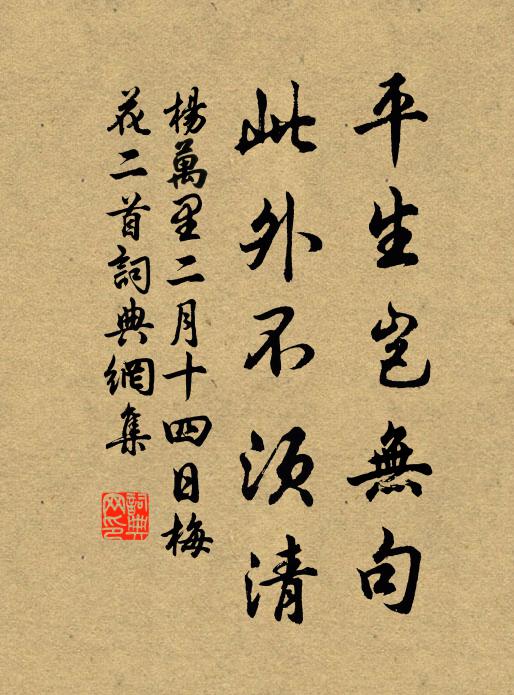 平生豈無句
此外不須清
楊萬里二月十四日梅
花二首詞典網集
詞典
网印